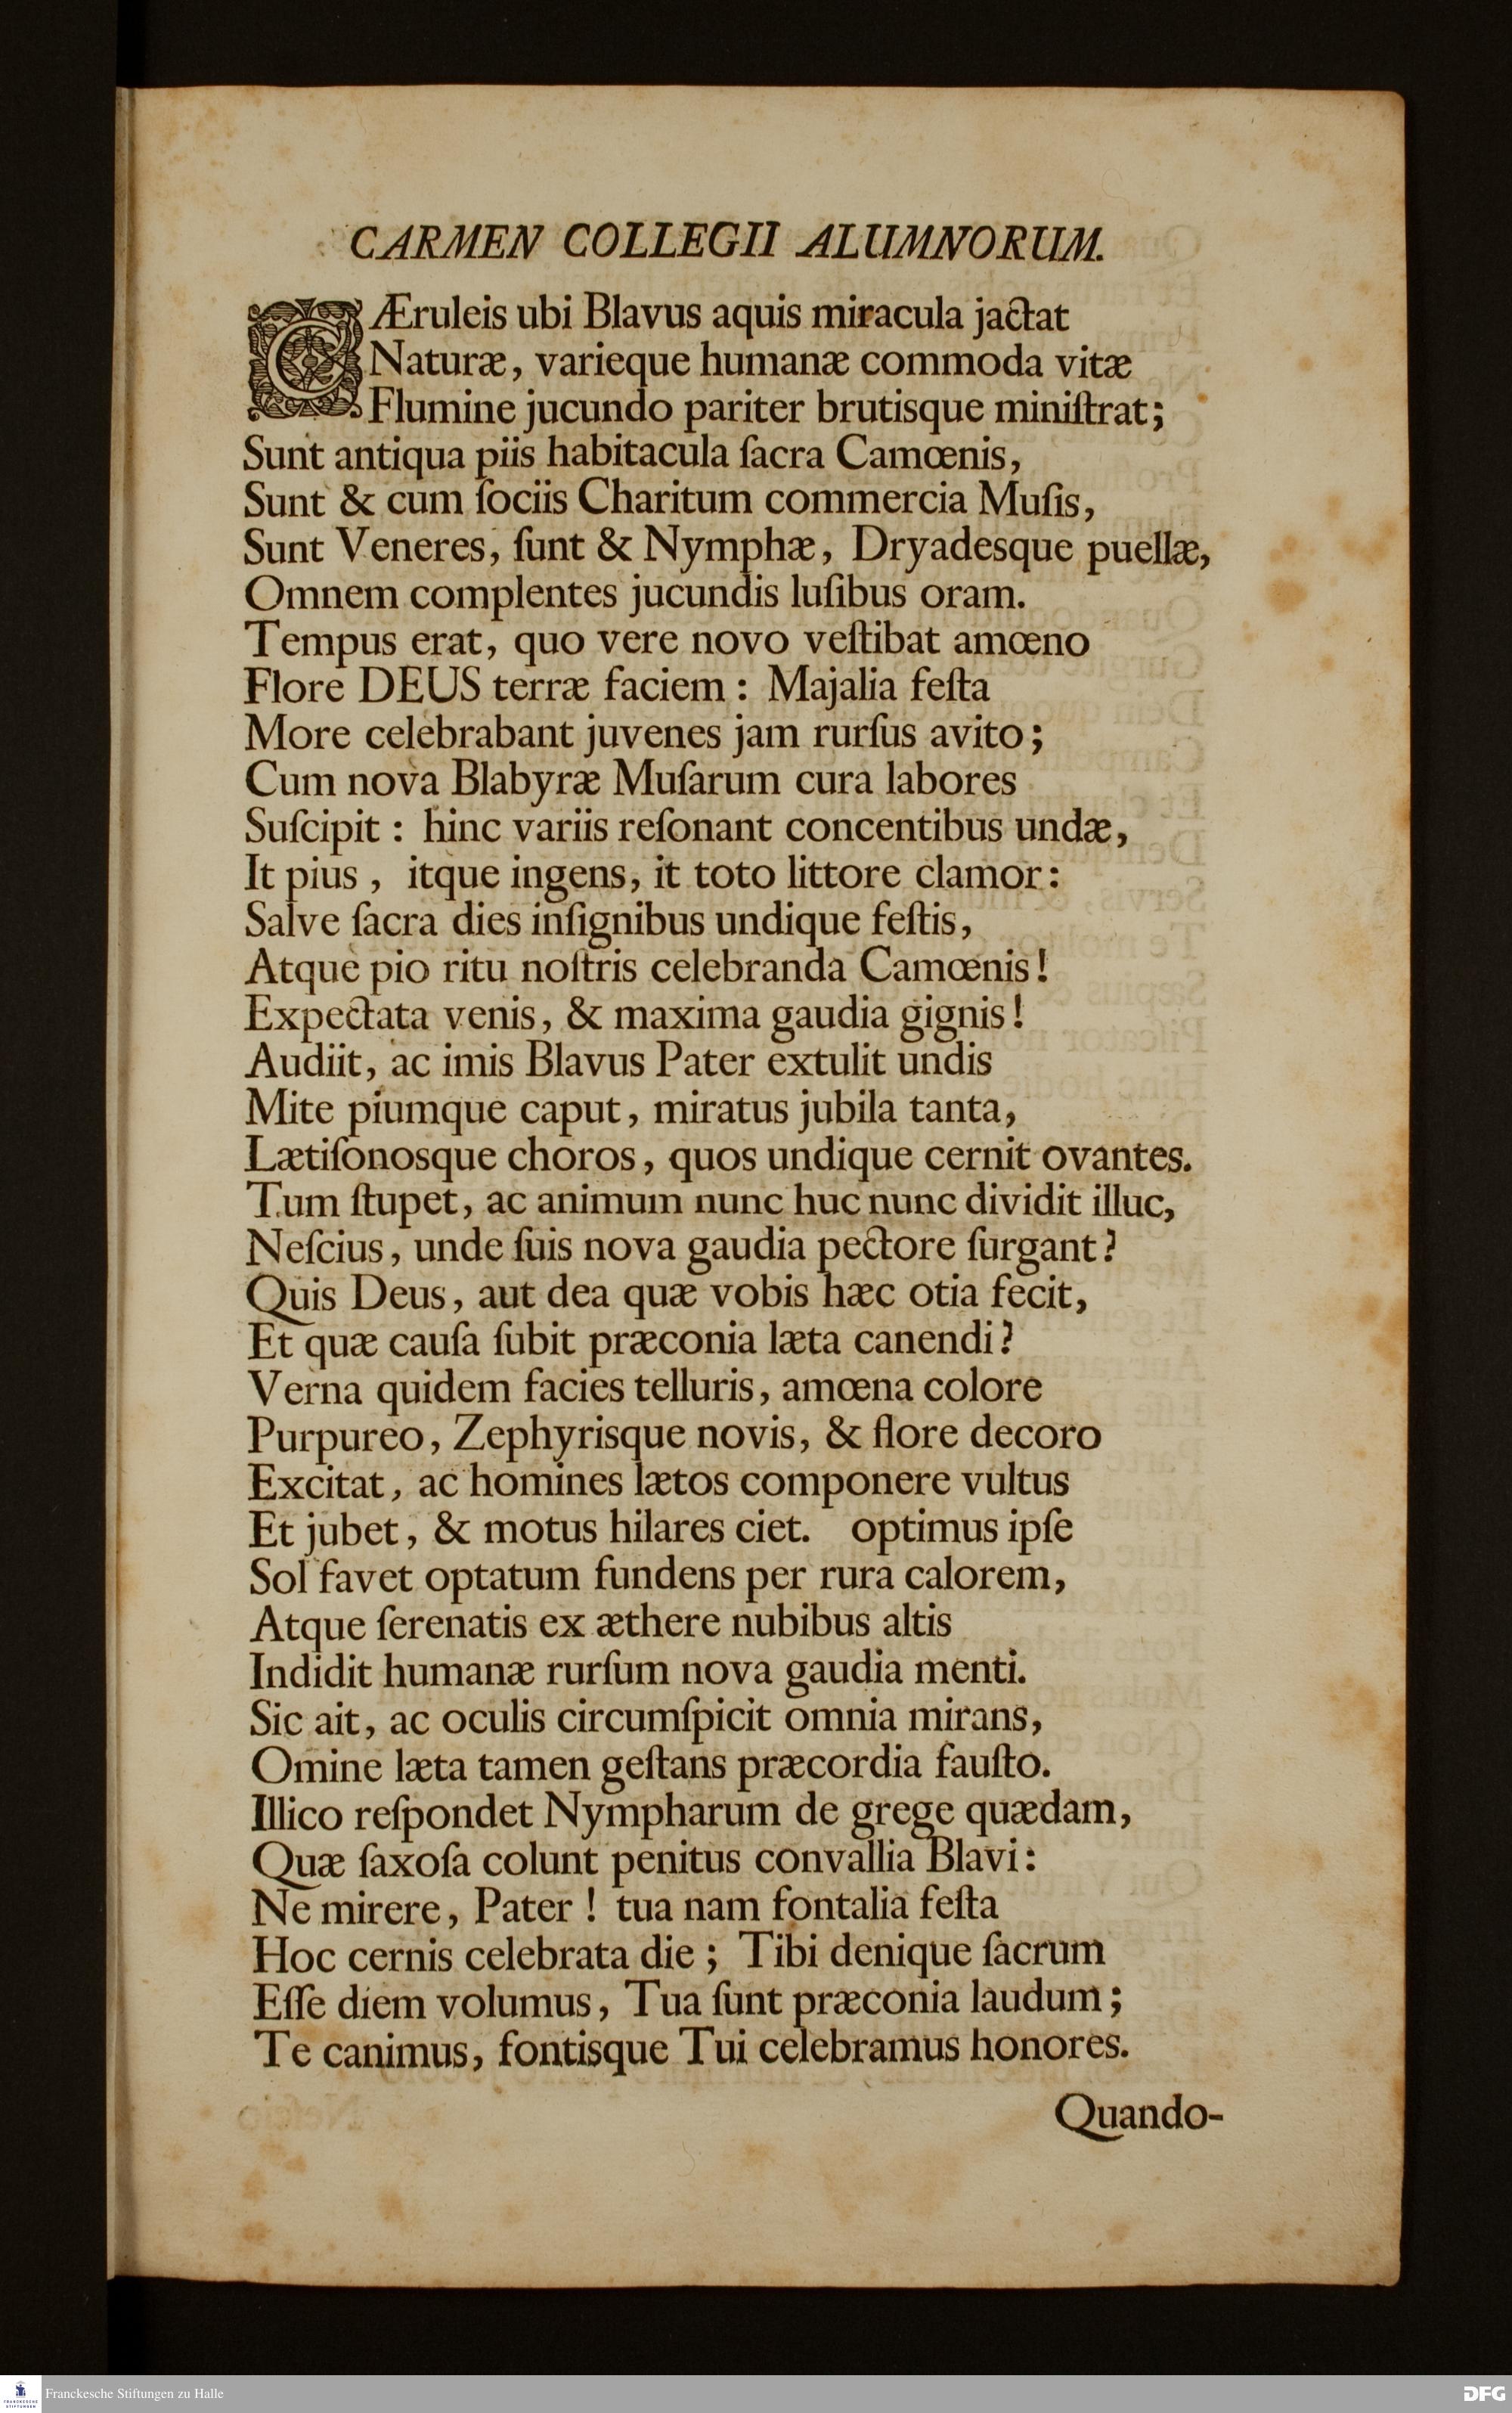 CARMEN COLLEGII ALUMNORUM.
CÆruleis ubi Blavus aquis miracula jactat
Naturæ, varieque humanæ commoda vitæ
Flumine jucundo pariter brutisque miniſtrat;
Sunt antiqua piis habitacula ſacra Camœnis,
Sunt & cum ſociis Charitum commercia Muſis,
Sunt Veneres, ſunt & Nymphæ, Dryadesque puellæ,
Omnem complentes jucundis luſibus oram.
Tempus erat, quo vere novo veſtibat amœno
Flore DEUS terræ faciem: Majalia feſta
More celebrabant juvenes jam rurſus avito;
Cum nova Blabyræ Muſarum cura labores
Suſcipit: hinc variis reſonant concentibus undæ,
It pius, itque ingens, it toto littore clamor:
Salve ſacra dies inſignibus undique feſtis,
Atque pio ritu noſtris celebranda Camœnis!
Expectata venis, & maxima gaudia gignis!
Audiit, ac imis Blavus Pater extulit undis
Mite piumque caput, miratus jubila tanta,
Lætiſonosque choros, quos undique cernit ovantes.
Tum ſtupet, ac animum nunc huc nunc dividit illuc,
Neſcius, unde ſuis nova gaudia pectore ſurgant?
Quis Deus, aut dea quæ vobis hæc otia fecit,
Et quæ cauſa ſubit præconia læta canendi?
Verna quidem facies telluris, amœna colore
Purpureo, Zephyrisque novis, & flore decoro
Excitat, ac homines lætos componere vultus
Et jubet, & motus hilares ciet. optimus ipſe
Sol favet optatum fundens per rura calorem,
Atque ſerenatis ex æthere nubibus altis
Indidit humanæ rurſum nova gaudia menti.
Sic ait, ac oculis circumſpicit omnia mirans,
Omine læta tamen geſtans præcordia fauſto.
Illico reſpondet Nympharum de grege quædam,
Quæ ſaxoſa colunt penitus convallia Blavi:
Ne mirere, Pater! tua nam fontalia feſta
Hoc cernis celebrata die; Tibi denique ſacrum
Eſſe diem volumus, Tua ſunt præconia laudum;
Te canimus, fontisque Tui celebramus honores.
Quando-
FRANCKESCHE STIFTUNGEN
Franckesche Stiftungen zu Halle
DFG